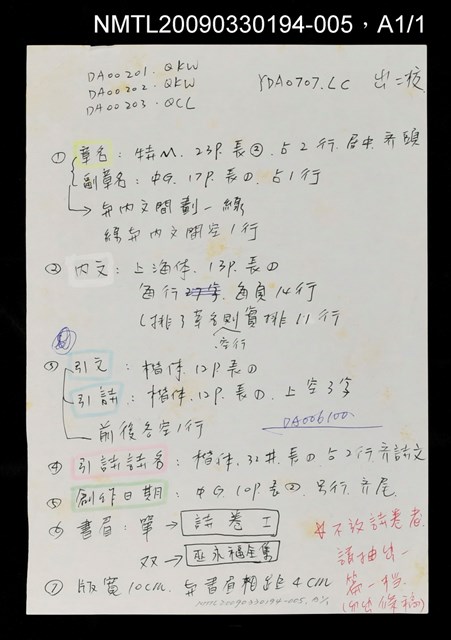 NMTL20090330194-005，A1/1
DA00201.QKW
DA00202.QKW
DA00203.QCL
YDA0707.LC 出二校
① 章名：特M. 23P. 長②. 占2行. 居中. 齊頭
副章名：中G. 17P. 長①. 占1行
→ 與內文間劃一線
線與內文間空1行
② 內文：上海体. 13P. 長①
每行27字. 每頁14行
排了章名則實排11行
空行
③ 引文：楷体. 12P. 長①
引詩：楷体. 12P. 長①. 上空3字
前後各空1行
DA006100.
④ 引詩詩名：楷体. 32井. 長①. 占2行. 齊詩文
⑤ 創作日期：中G. 10P. 長②. 另行. 齊尾.
⑥ 書眉：單→ 詩卷I
双→ 巫永福全集
⑦ 版寬10cm. 與書眉相距4cm
不放詩卷者
請抽出一
第一档.
NMTL20090330194-005, A1/1